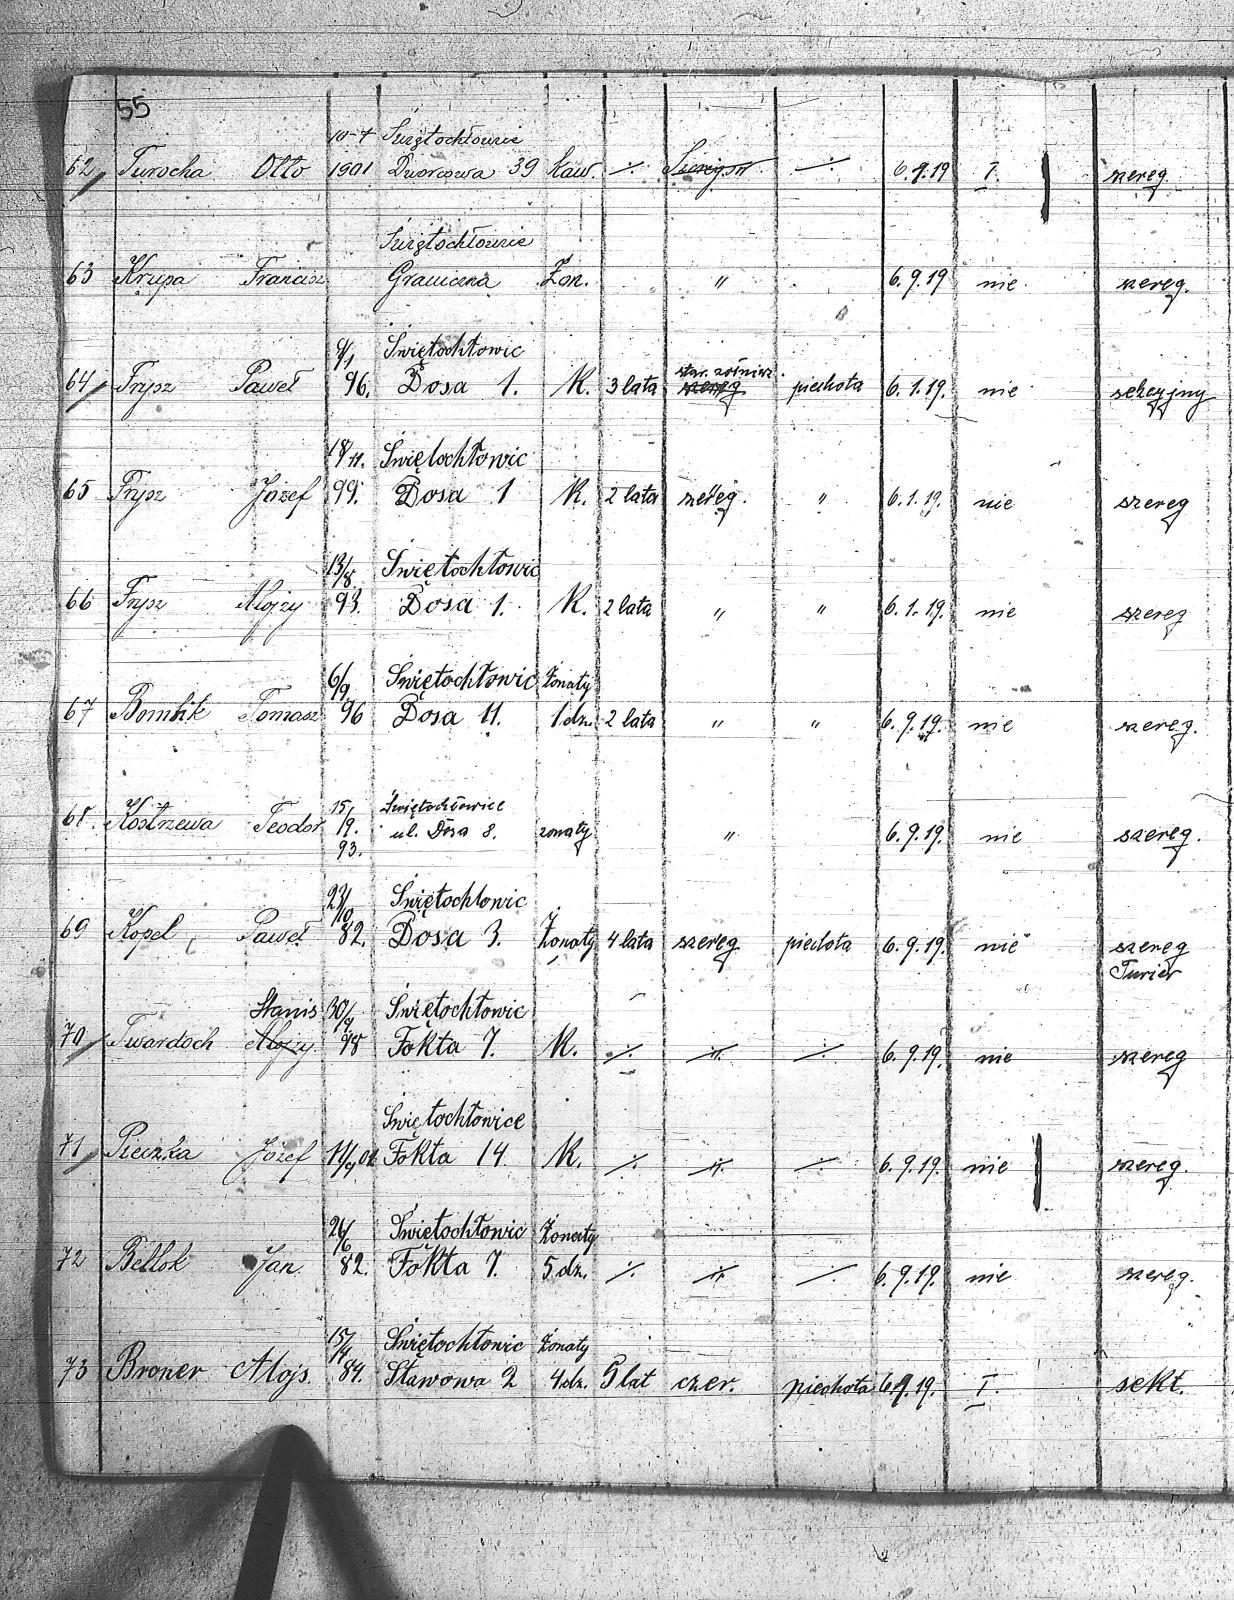 55
10-7 Świętochłowie
62 Turocha Otto 1901 Dworcowa 39 kaw. ./. ./. 6.9.19 I szereg.
Świętochłowie
63 Krupa Francisz Graniczna Żon. " 6.9.19 nie szereg.
Świętochłowic
64 Frysz Paweł 96. Dosa 1. K. 3 lata star. żołnierz szereg piechota 6.1.19. nie sekcyjny
18/11. Świętochłowic
65 Frysz Józef 99. Dosa 1 K. 2 lata szereg. " 6.1.19. nie szereg
13/8. Świętochłowic
66 Frysz Alojzy 93. Dosa 1. K. 2 lata " " 6.1.19. nie szereg
6/9. Świętochłowic Żonaty
67 Bombik Tomasz 96 Dosa 11. 1 dz. 2 lata " " 6.9.19. nie szereg.
15/ Świętochłowice
68. Kostrzewa Teodor 19. ul. Dosa 8. żonaty " 6.9.19. nie szereg.
93.
Świętochłowic
69 Kopel Paweł 82. Dosa 3. Żonaty 4 lata szereg piechota 6.9.19. nie szereg
Furier
Stanis 30/9. Świętochłowic
70 Twardoch Alojzy 98 Fokta 7. K. ./. " ./. 6.9.19. nie szereg
Świętochłowice
71 Pieczka Józef Fokta 14 K. ./. " ./. 6.9.19. nie szereg.
26/6 Świętochłowic Żonaty
72 Bellok Jan 82. Fokta 7. 5 dz. ./. " ./. 6.9.19. nie szereg.
15/4. Świętochłowic Żonaty
73 Broner Alojs. 84. Stawowa 2 4 dz. 5 lat czer. piechota 6.9.19. I. sekt.